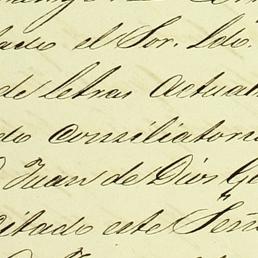 tado el Sor. Ldo.
de letras Actual
do Consiliatorio
Juan de Dios Ge
Citado este Señ